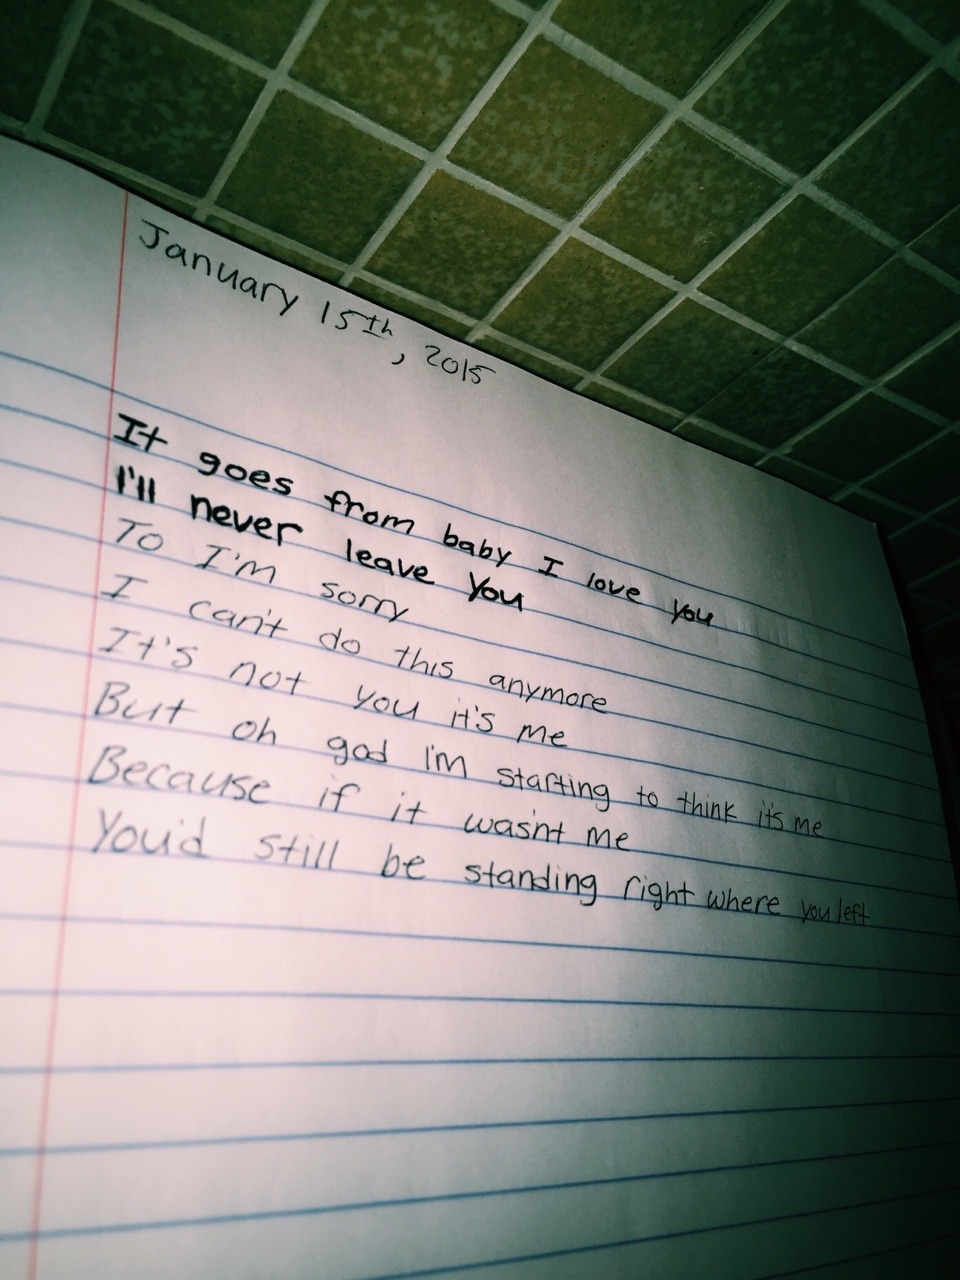 January 15th, 2015
It goes from baby I love you
I'll never leave you
To I'm sorry
I can't do this anymore
It's not you it's me
But oh god i'm starting to think it's me
Because if it wasn't me
You'd still be standing right where you left